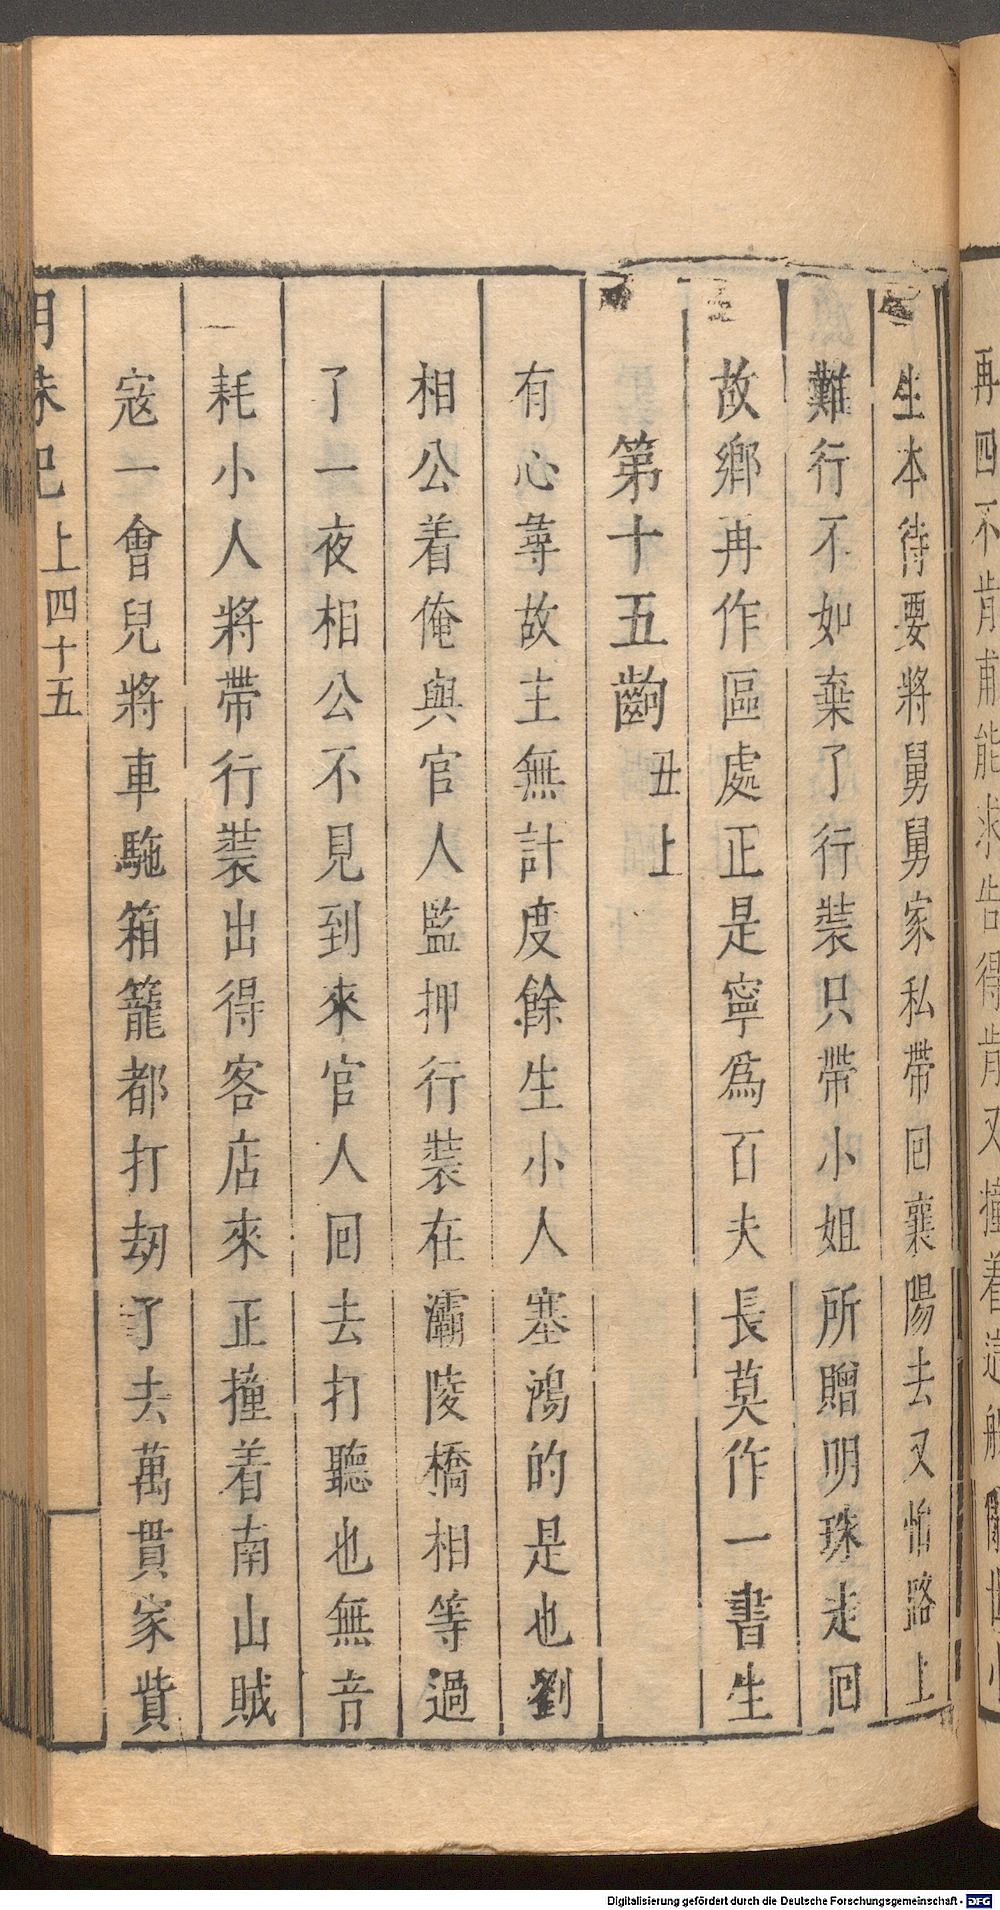 再四不肯甫能求告得肯又撞着這般
生本待要將舅舅家私帶回襄陽去又怕路上
難行不如棄了行裝只帶小姐所贈明珠走回
故鄉再作區處正是寧爲百夫長莫作一書生
第十五齣 丑上
有心尋故主無計度餘生小人塞鴻的是也劉
相公着俺與官人監押行裝在灞陵橋相等過
了一夜相公不見到來官人回去打聽也無音
耗小人將帶行裝出得客店來正撞着南山賊
寇一會兒將車駞箱籠都打刼了去萬貫家貲
明珠記 上四十五
Digitalisierung gefördert durch die Deutsche Forschungsgemeinschaft - DFG